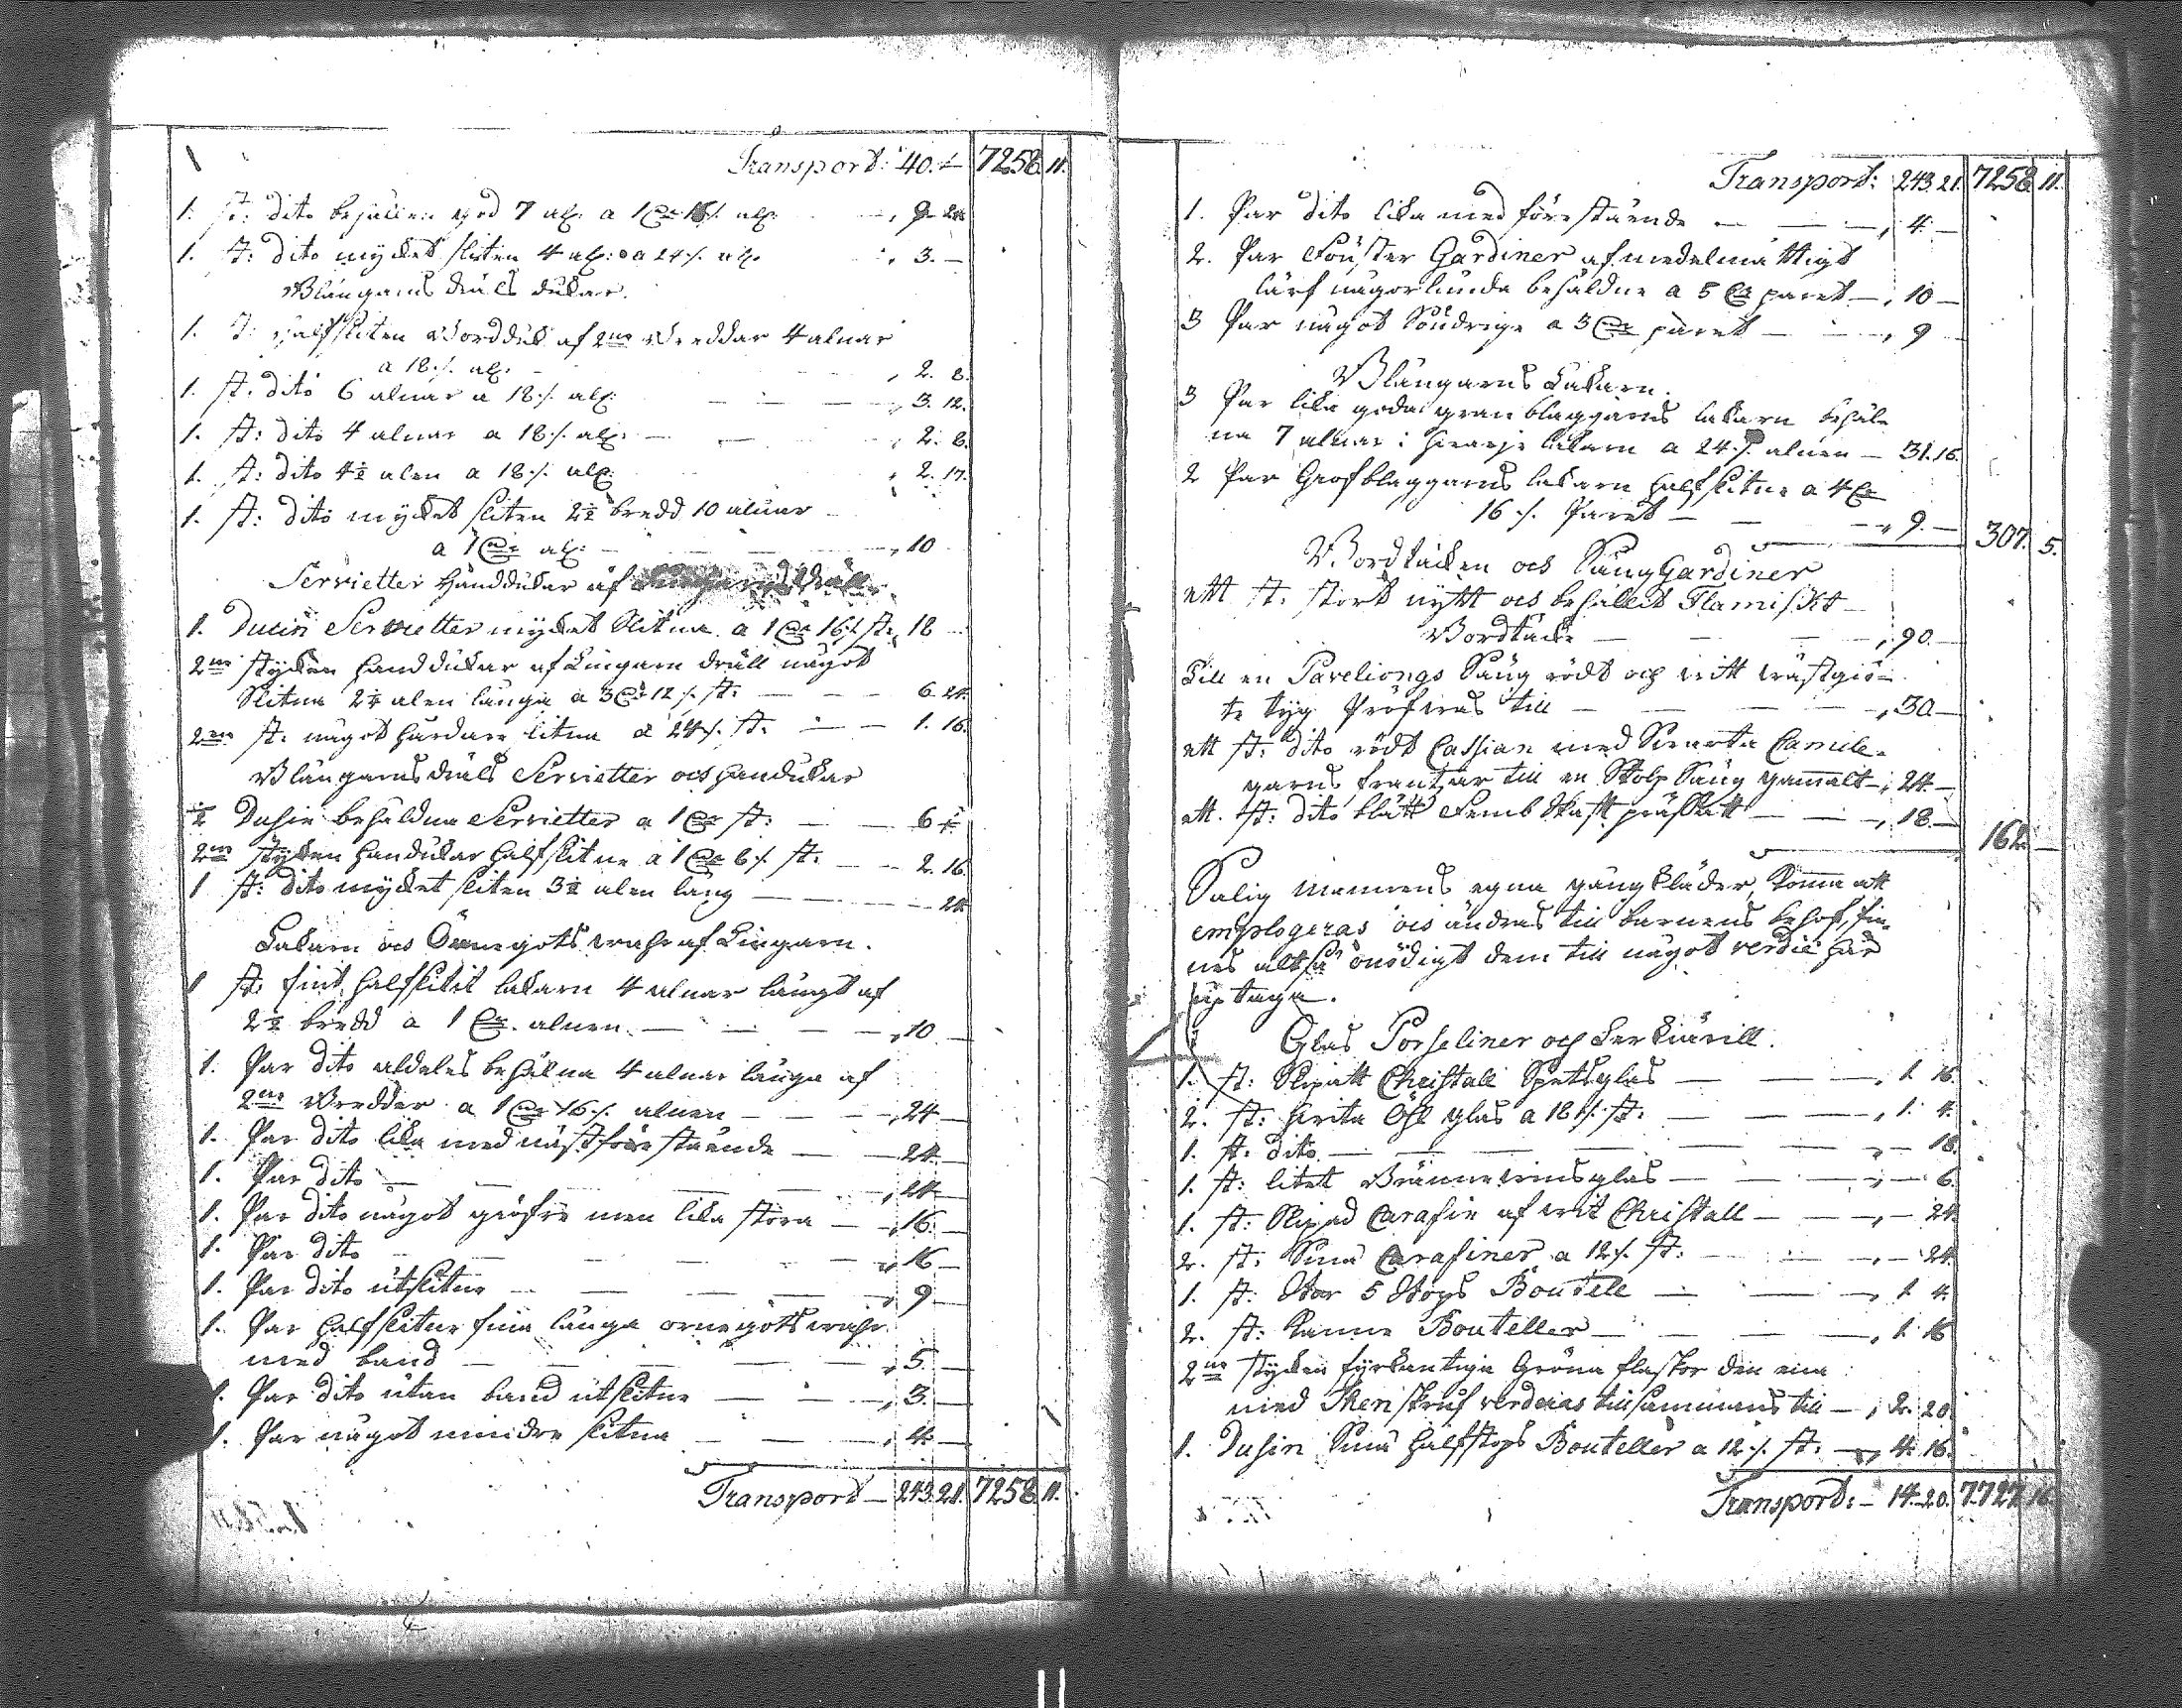 Transport: 40.— 7258. 11.
1. st: dito behållen god 7 al: a 1 16 /. al: 9. 24
1. st: dito mycket sliten 4 al: a 24 /. al: 3.—
Blångarns dräls dukar.
1. st: halfsliten Bordduk af 2ne Breddar 4 alnar
a 18 /. al: 2. 8.
1. st. dito 6 alnar a 18 /. al: 3. 12.
1. st: dito 4 alnar a 18 /. al: 2. 8.
1. st: dito 4½ alen a 18 /. al: 2. 17.
1. st: dito mycket sliten 2½ bredd 10 alnar
a 1 al: 10
Servietter Handdukar af
1. Ducin Servietter mycket Slitna a 1 16 /. st: 18
2ne stycken handdukar af Lingarn dräll något
Slitna 2½ alen långa a 3 12 /. st: 6. 24.
2ne st: något hårdare slitna a 24 /. st: 1. 16.
Blångarns dräls Servietter och Handukar
½ Dusin behåldna Servietter a 1 st: 6
2ne stycken handukar halfslitne a 1 8 /. st: 2. 16.
1 st: dito mycket sliten 3½ alen lång 24
Lakarn och Örnegotts wahr af Lingarn.
1 st: fint halfslitit lakarn 4 alnar långt af
2½ bredd a 1 alnen 10
1. Par dito aldeles behålna 4 alnar långa af
2ne Bredder a 1 16 /. alnen 24
1. Par dito lika med näst förestående 24
1. Par dito 24
1. Par dito något gröfre men lika stora 16
1. Par dito 16
1. Par dito utslitne 9
1. Par halfslitne fina långa örnegotts wahr
med band 5
1. Par dito utan band utslitne 3.
1. Par något mindre slitna 4
Transport — 243. 21. 7258. 11.
Transport: 243. 21. 7258. 11.
1. Par dito lika med förestående 4.
2. Par Fönster Gardiner af medelmåttigt
lärf någorlunda behåldne a 5 paret 10
3 Par något Söndrige a 3 paret 9
Blångarns Lakarn.
3 Par lika goda gran blaggarns lakarn behål
na 7 alnar i hwarje lakarn a 24 /. alnen 31. 16.
2 Par Grofblaggarns lakarn halfslitne a 4
16 /. Paret 9. 307. 5.
Bordtäcken och SängGardiner
ett st: stort nytt och behållit Flamiskt
Bordtäcke 90.
Till en Paveliongs Säng rödt och witt wästgiö-
te tyg Pröfwas till 30
ett st: dito rödt Cassian med Swarta Camile-
garns frantzar till en Stolp Säng gammalt 24
ett. st: dito blått femb skaft 18. 162
Salig Mannens egna gångkläder, komma att
employeras och ändras till barnens behof, fin-
nes altså onödigt dem till något verdie här
uptaga.
Glas Porseliner och Lerkiärill.
1. st: Slipatt Christall Spetsglas 1. 16.
2. st: hwita Öhl glas a 18 /. st: 1. 4.
1. st: dito 18.
1. st: litet Brännewinsglas 6.
1. st: Slipad Carafin af wit Christall 24.
2. st: Små Carafiner a 12 /. st: 24
1. st: Stor 5 Stops Boutele 1. 4.
2. st: Kanne Bouteller 1. 16
2ne stycken fyrkantiga Gröna flaskor den ena
med Skruf verderas tillsammans till 2. 20.
1. Dusin Små halfstops Bouteller a 12 /. st: 4. 16.
Transport: — 14. 20. 7727. 16.